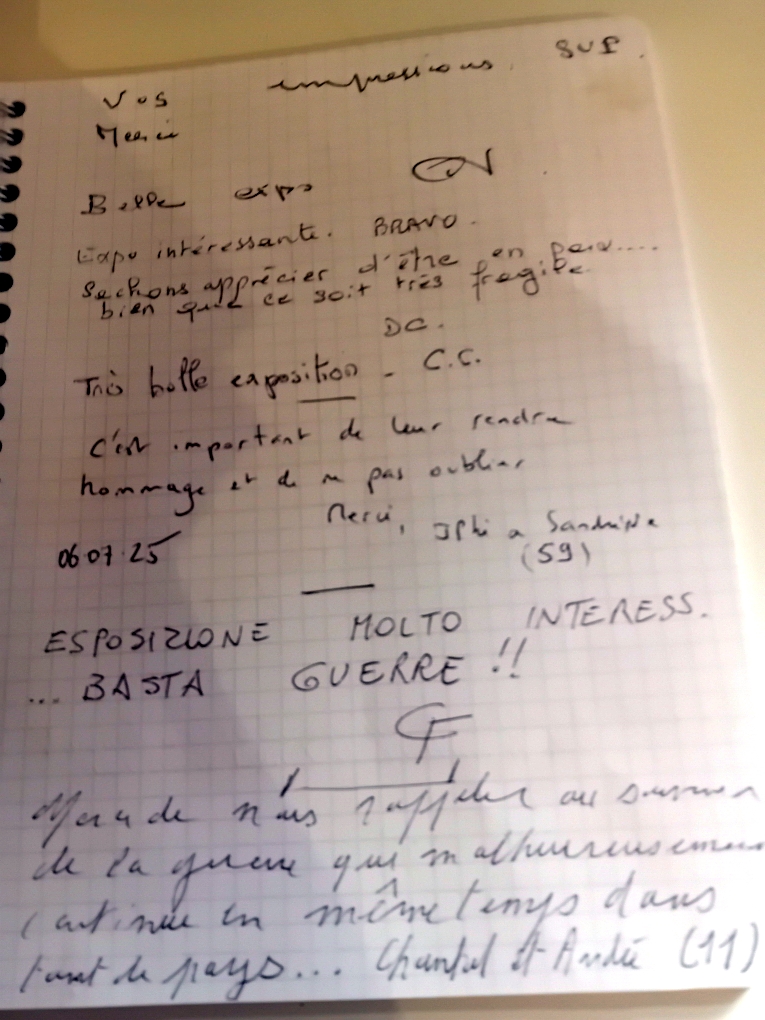 Vos impressions. SVP.
Merci
Belle expo
Expo intéressante. BRAVO.
Sachons apprécier d'être en paix....
bien que ce soit très fragile.
DC.
Très belle exposition - C.C.
C'est important de leur rendre
hommage et de ne pas oublier
Merci, & Sandrine
(59)
06.07.25
ESPOSIZIONE MOLTO INTERESS.
... BASTA GUERRE!!
Merci de nous rappeler au
de la guerre qui malheureusement
continue en même temps dans
tant de pays... Chantal et André (11)